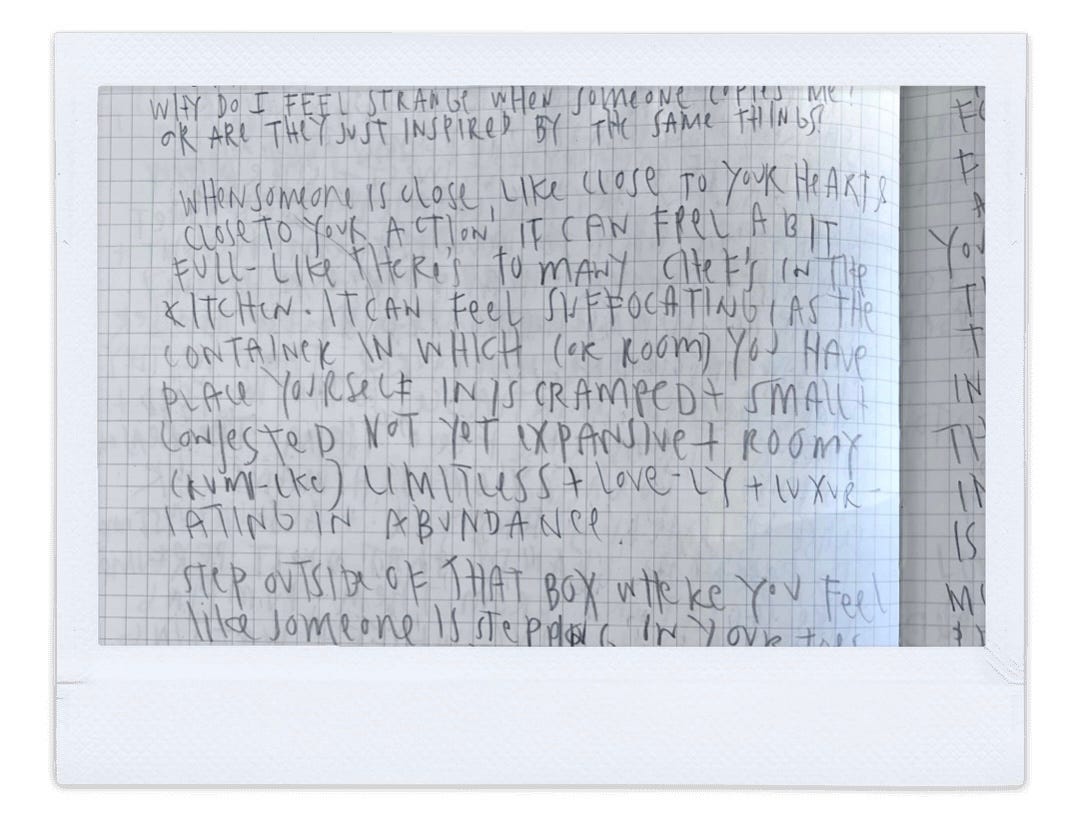 WHY DO I FEEL STRANGE WHEN SOMEONE COPIES ME?
OR ARE THEY JUST INSPIRED BY THE SAME THINGS?
WHEN SOMEONE IS CLOSE, LIKE CLOSE TO YOUR HEARTS
CLOSE TO YOUR ACTION, IT CAN FEEL A BIT
FULL-LIKE THERE'S TO MANY CHEF'S IN THE
KITCHEN. IT CAN FEEL SUFFOCATING, AS THE
CONTAINER IN WHICH (OR ROOM) YOU HAVE
PLACE YOURSELF IN IS CRAMPED + SMALL +
CONJESTED NOT YET EXPANSIVE + ROOMY
LIMITLESS + LOVE-LY + LUXUR-
IATING IN ABUNDANCE.
STEP OUTSIDE OF THAT BOX WHERE YOU FEEL
LIKE SOMEONE IS STEPPING IN YOUR TOES
FO
F
A
YOU
T
T
IN
TH
IN
IS